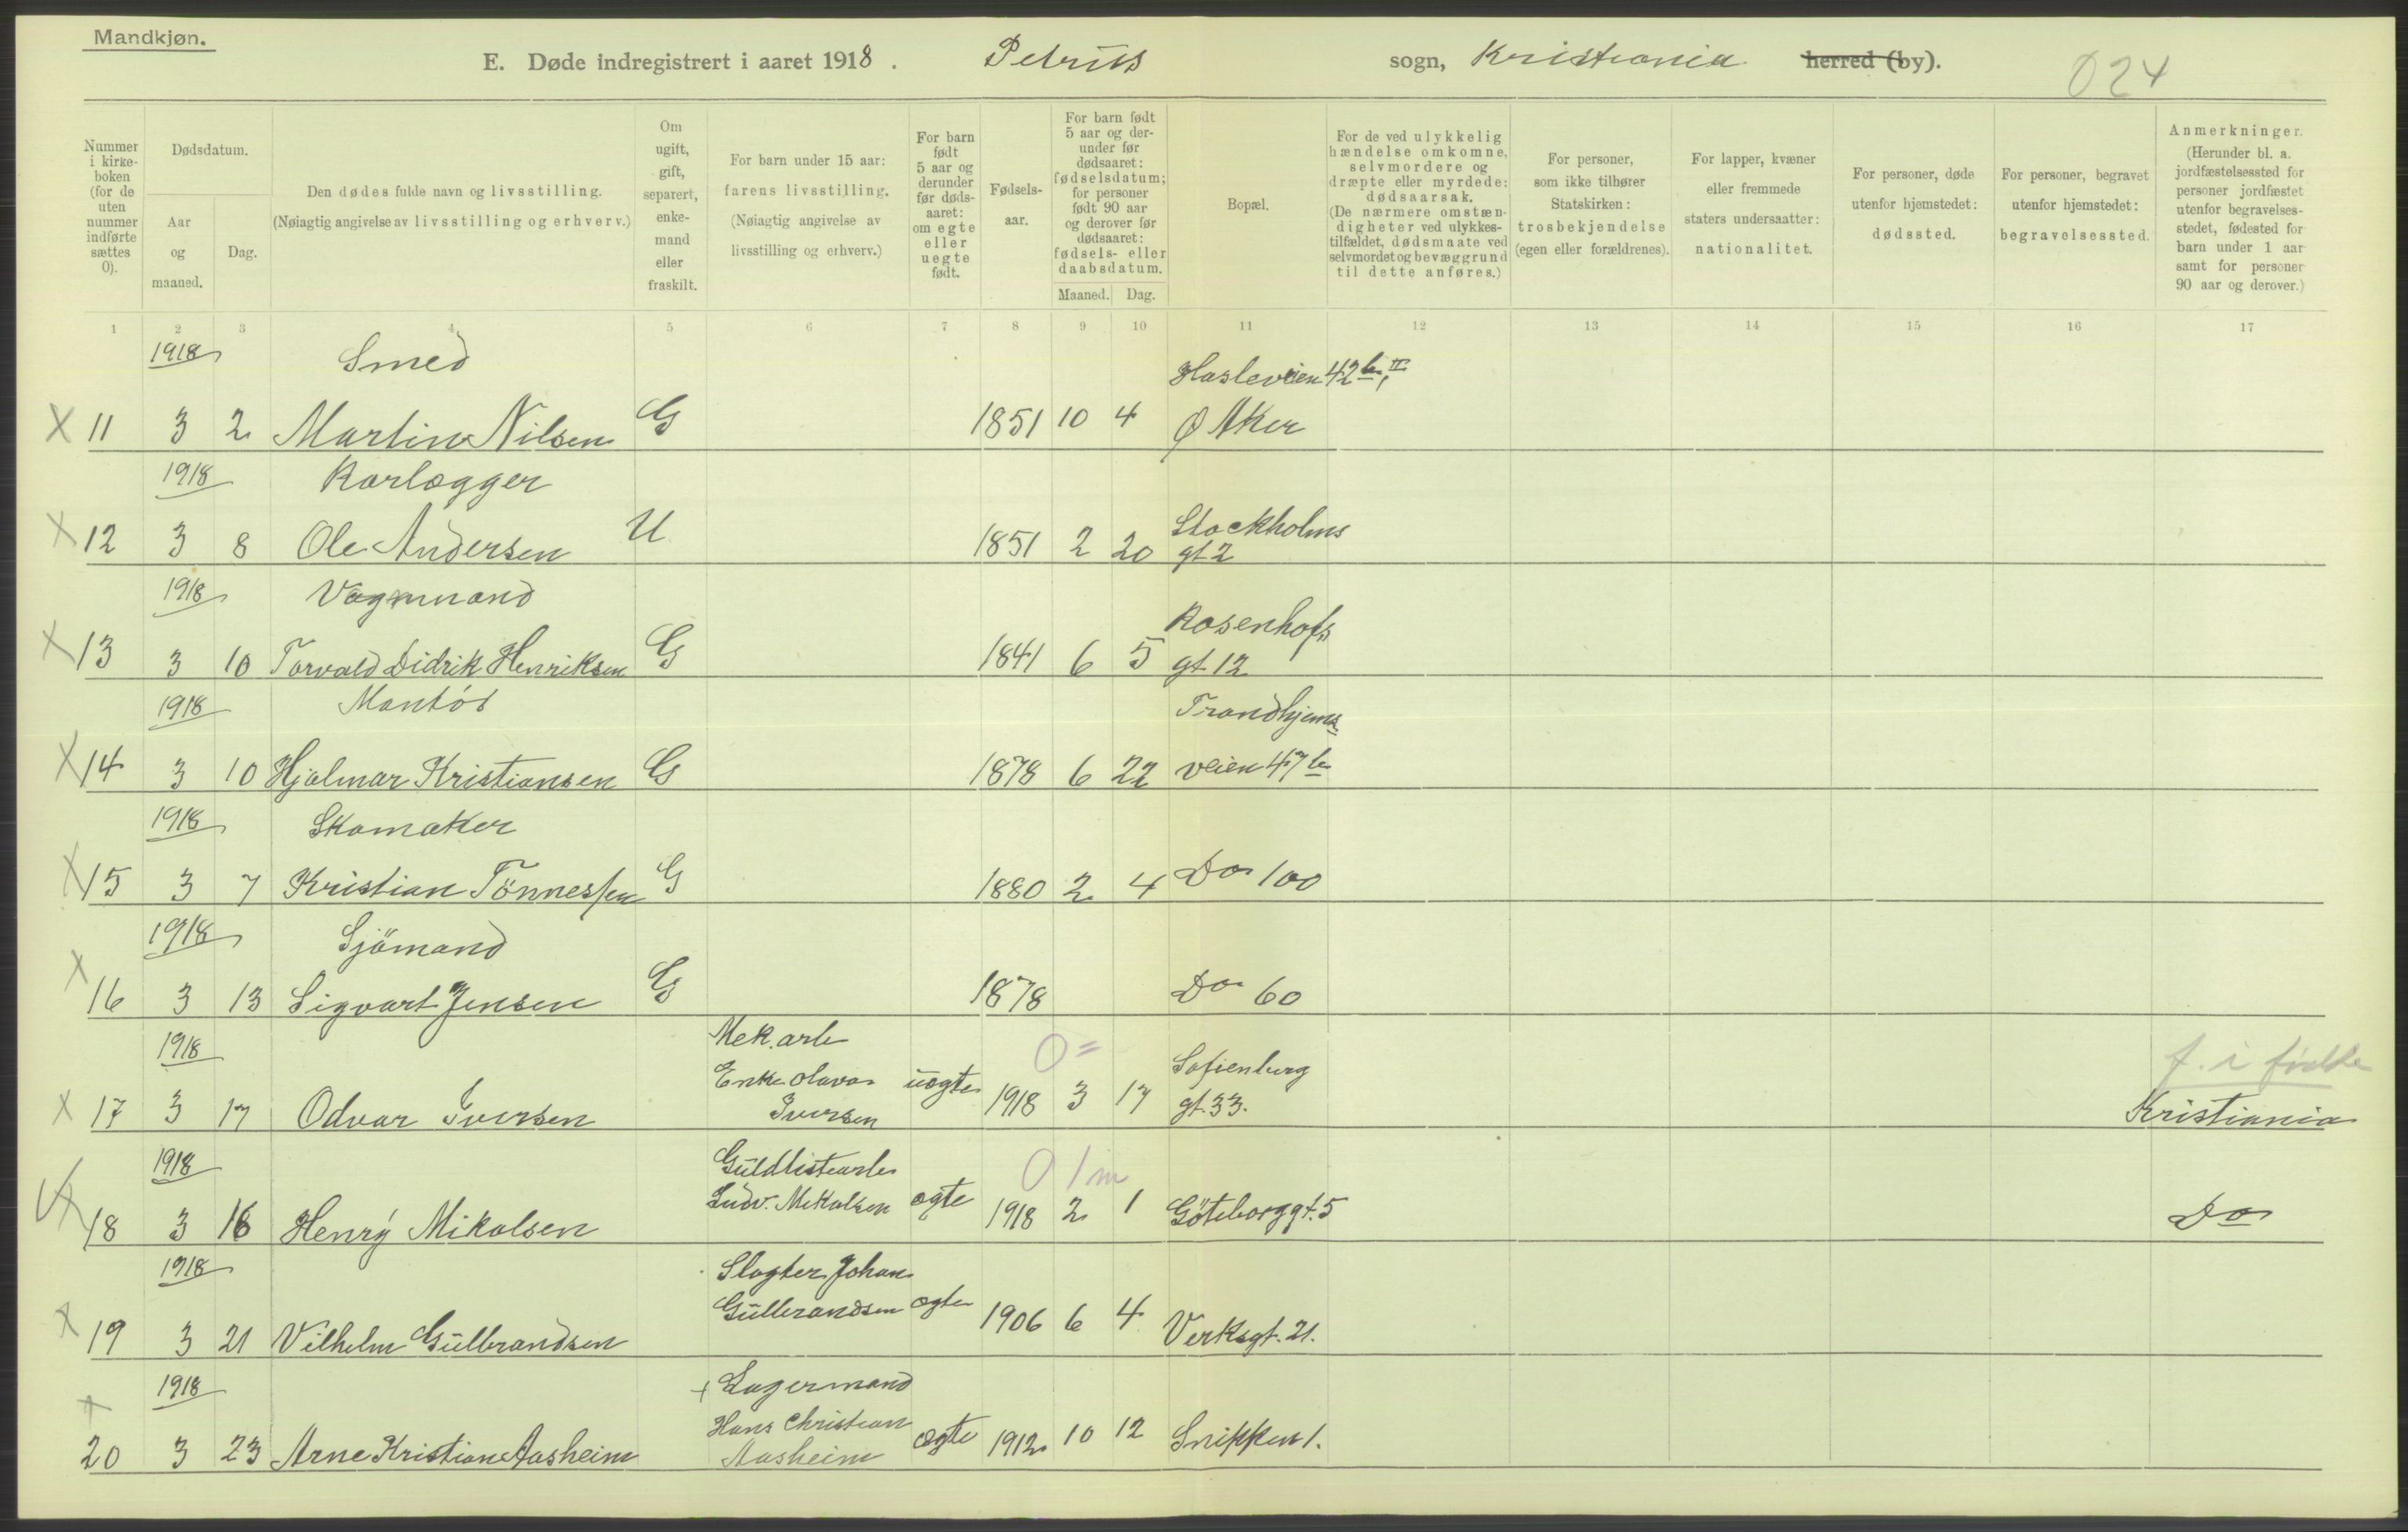 Mandkjøn.
E. Døde indregistrert i aaret 1918. Petrus sogn, Kristiania herred (by).
024
Nummer i kirkeboken (for de uten nummer indførte sættes 0).
Dødsdatum.
Aar og maaned.
Dag.
Den dødes fulde navn og livsstilling.
(Nøiagtig angivelse av livsstilling og erhverv.)
Om ugift, gift, separert, enkemand eller fraskilt.
For barn under 15 aar: farens livsstilling.
(Nøiagtig angivelse av livsstilling og erhverv.)
For barn født 5 aar og derunder før dødsaaret: om egte eller uegte født.
Fødselsaar.
For barn født 5 aar og derunder før dødsaaret: fødselsdatum; for personer født 90 aar og derover før dødsaaret: fødsels- eller daabsdatum.
Maaned. Dag.
Bopæl.
For de ved ulykkelig hændelse omkomne, selvmordere og dræpte eller myrdede: dødsaarsak.
(De nærmere omstændigheter ved ulykkestilfældet, dødsmaate ved selvmordet og bevæggrund til dette anføres.)
For personer, som ikke tilhører Statskirken: trosbekjendelse (egen eller forældrenes).
For lapper, kvæner eller fremmede staters undersaatter: nationalitet.
For personer, døde utenfor hjemstedet: dødssted.
For personer, begravet utenfor hjemstedet: begravelsessted.
Anmerkninger.
(Herunder bl. a. jordfæstelsessted for personer jordfæstet utenfor begravelsesstedet, fødested for barn under 1 aar samt for personer 90 aar og derover.)
1 2 3 4 5 6 7 8 9 10 11 12 13 14 15 16 17
1918 Smed Hasleveien 42b, II
X 11 3 2 Martin Nilsen G 1851 10 4 Ø Aker
1918 Rørlægger Stockholms
X 12 3 8 Ole Andersen U 1851 2 20 gt 2
1918 Vognmand Rosenhofs
X 13 3 10 Torvald Didrik Henriksen G 1841 6 5 gt. 12
1918 Montør Trondhjems
X 14 3 10 Hjalmar Kristiansen G 1878 6 22 veien 47b
1918 Skomaker
X 15 3 7 Kristian Tönnessen G 1880 2 4 Do 100
1918 Sjömand
X 16 3 13 Sigvart Jensen G 1878 Do 60
1918 Mek. arb 0 = Sofienberg f. i
Enke Olava uegte
X 17 3 17 Odvar Iversen Iversen 1918 3 17 gt. 33. Kristiania
1918 Guldlistearb 0 1m
X 18 3 16 Henry Mikalsen Ludv. Mikalsen egte 1918 2 1 Göteborggt. 5 Do
1918 Slagter Johan
X 19 3 21 Vilhelm Gulbrandsen Gulbrandsen egte 1906 6 4 Verksgt. 21.
1918 + Lagermand
X 20 3 23 Arne Kristian Aasheim Hans Christian Aasheim egte 1912 10 12 Snippen 1.